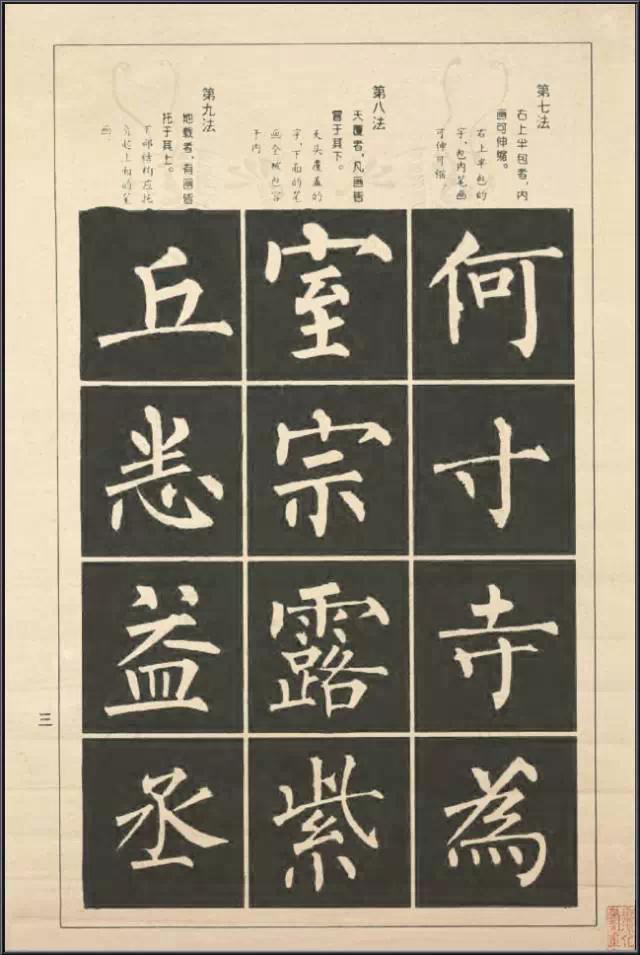 第七法
右上半包者，内
画可伸缩。
右上半包的
字，包内笔画
可伸可缩。
何寸寺為
第八法
天覆者，凡画皆
冒于其下。
天头覆盖的
字，下面的笔
画全被包容
于内
室宗露紫
第九法
地载者，有画皆
托于其上。
下部结构应托
负起上面的笔
画。
丘悉益丞
三